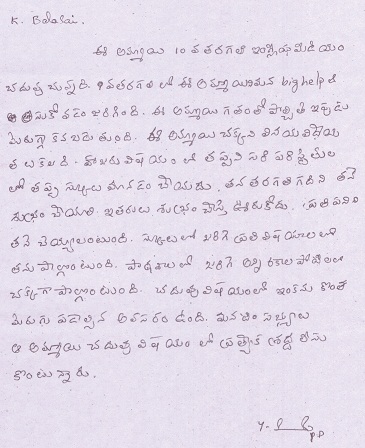 K. Balalai.
ఈ అమ్మాయి 10 వ తరగతి ఇంగ్లీషు మీడియం
చదువు చున్నది. 9 వ తరగతి లో ఈ అమ్మాయి మన big help తీ
సుకోవడం జరిగింది. ఈ అమ్మాయి గతంతో పోల్చితే ఇప్పుడు
మెరుగ్గా కనబడుతుంది. ఈ అమ్మాయి చక్కని వినయ విధేయ
తలు కలది. హాజరు విషయం లో తప్పని సరి పరిస్థితుల
లో తప్ప స్కూలు మానడం చేయదు. తన తరగతి గదిని తనే
శుభ్రం చేయాలి. ఇతరులు శుభ్రం చేస్తే ఊరుకోదు. ప్రతి పనిని
తనే చెయ్యాలంటుంది. స్కూలులో జరిగే ప్రతి విషయాలలో
తను పాల్గొంటుంది. పాఠశాలలో జరిగే అన్ని రకాల పోటీలలో
చక్కగా పాల్గొంటుంది. చదువు విషయంలో ఇంకను కొంత
మెరుగు పడాల్సిన అవసరం ఉంది. మన టీం సభ్యులు
ఆ అమ్మాయి చదువు విషయం లో ప్రత్యేక శ్రద్ధ తీసు
కొంటున్నారు.